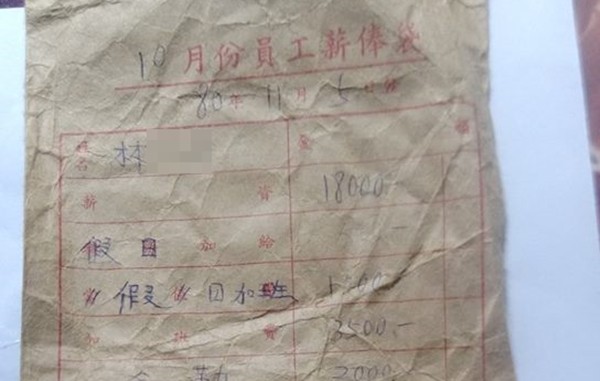 10月份員工薪俸袋
80年11月5日發
姓名 林 金 額
薪 資 18000.-
假日加給 -
假日加班
加班費 3500.-
全 勤 2000.-